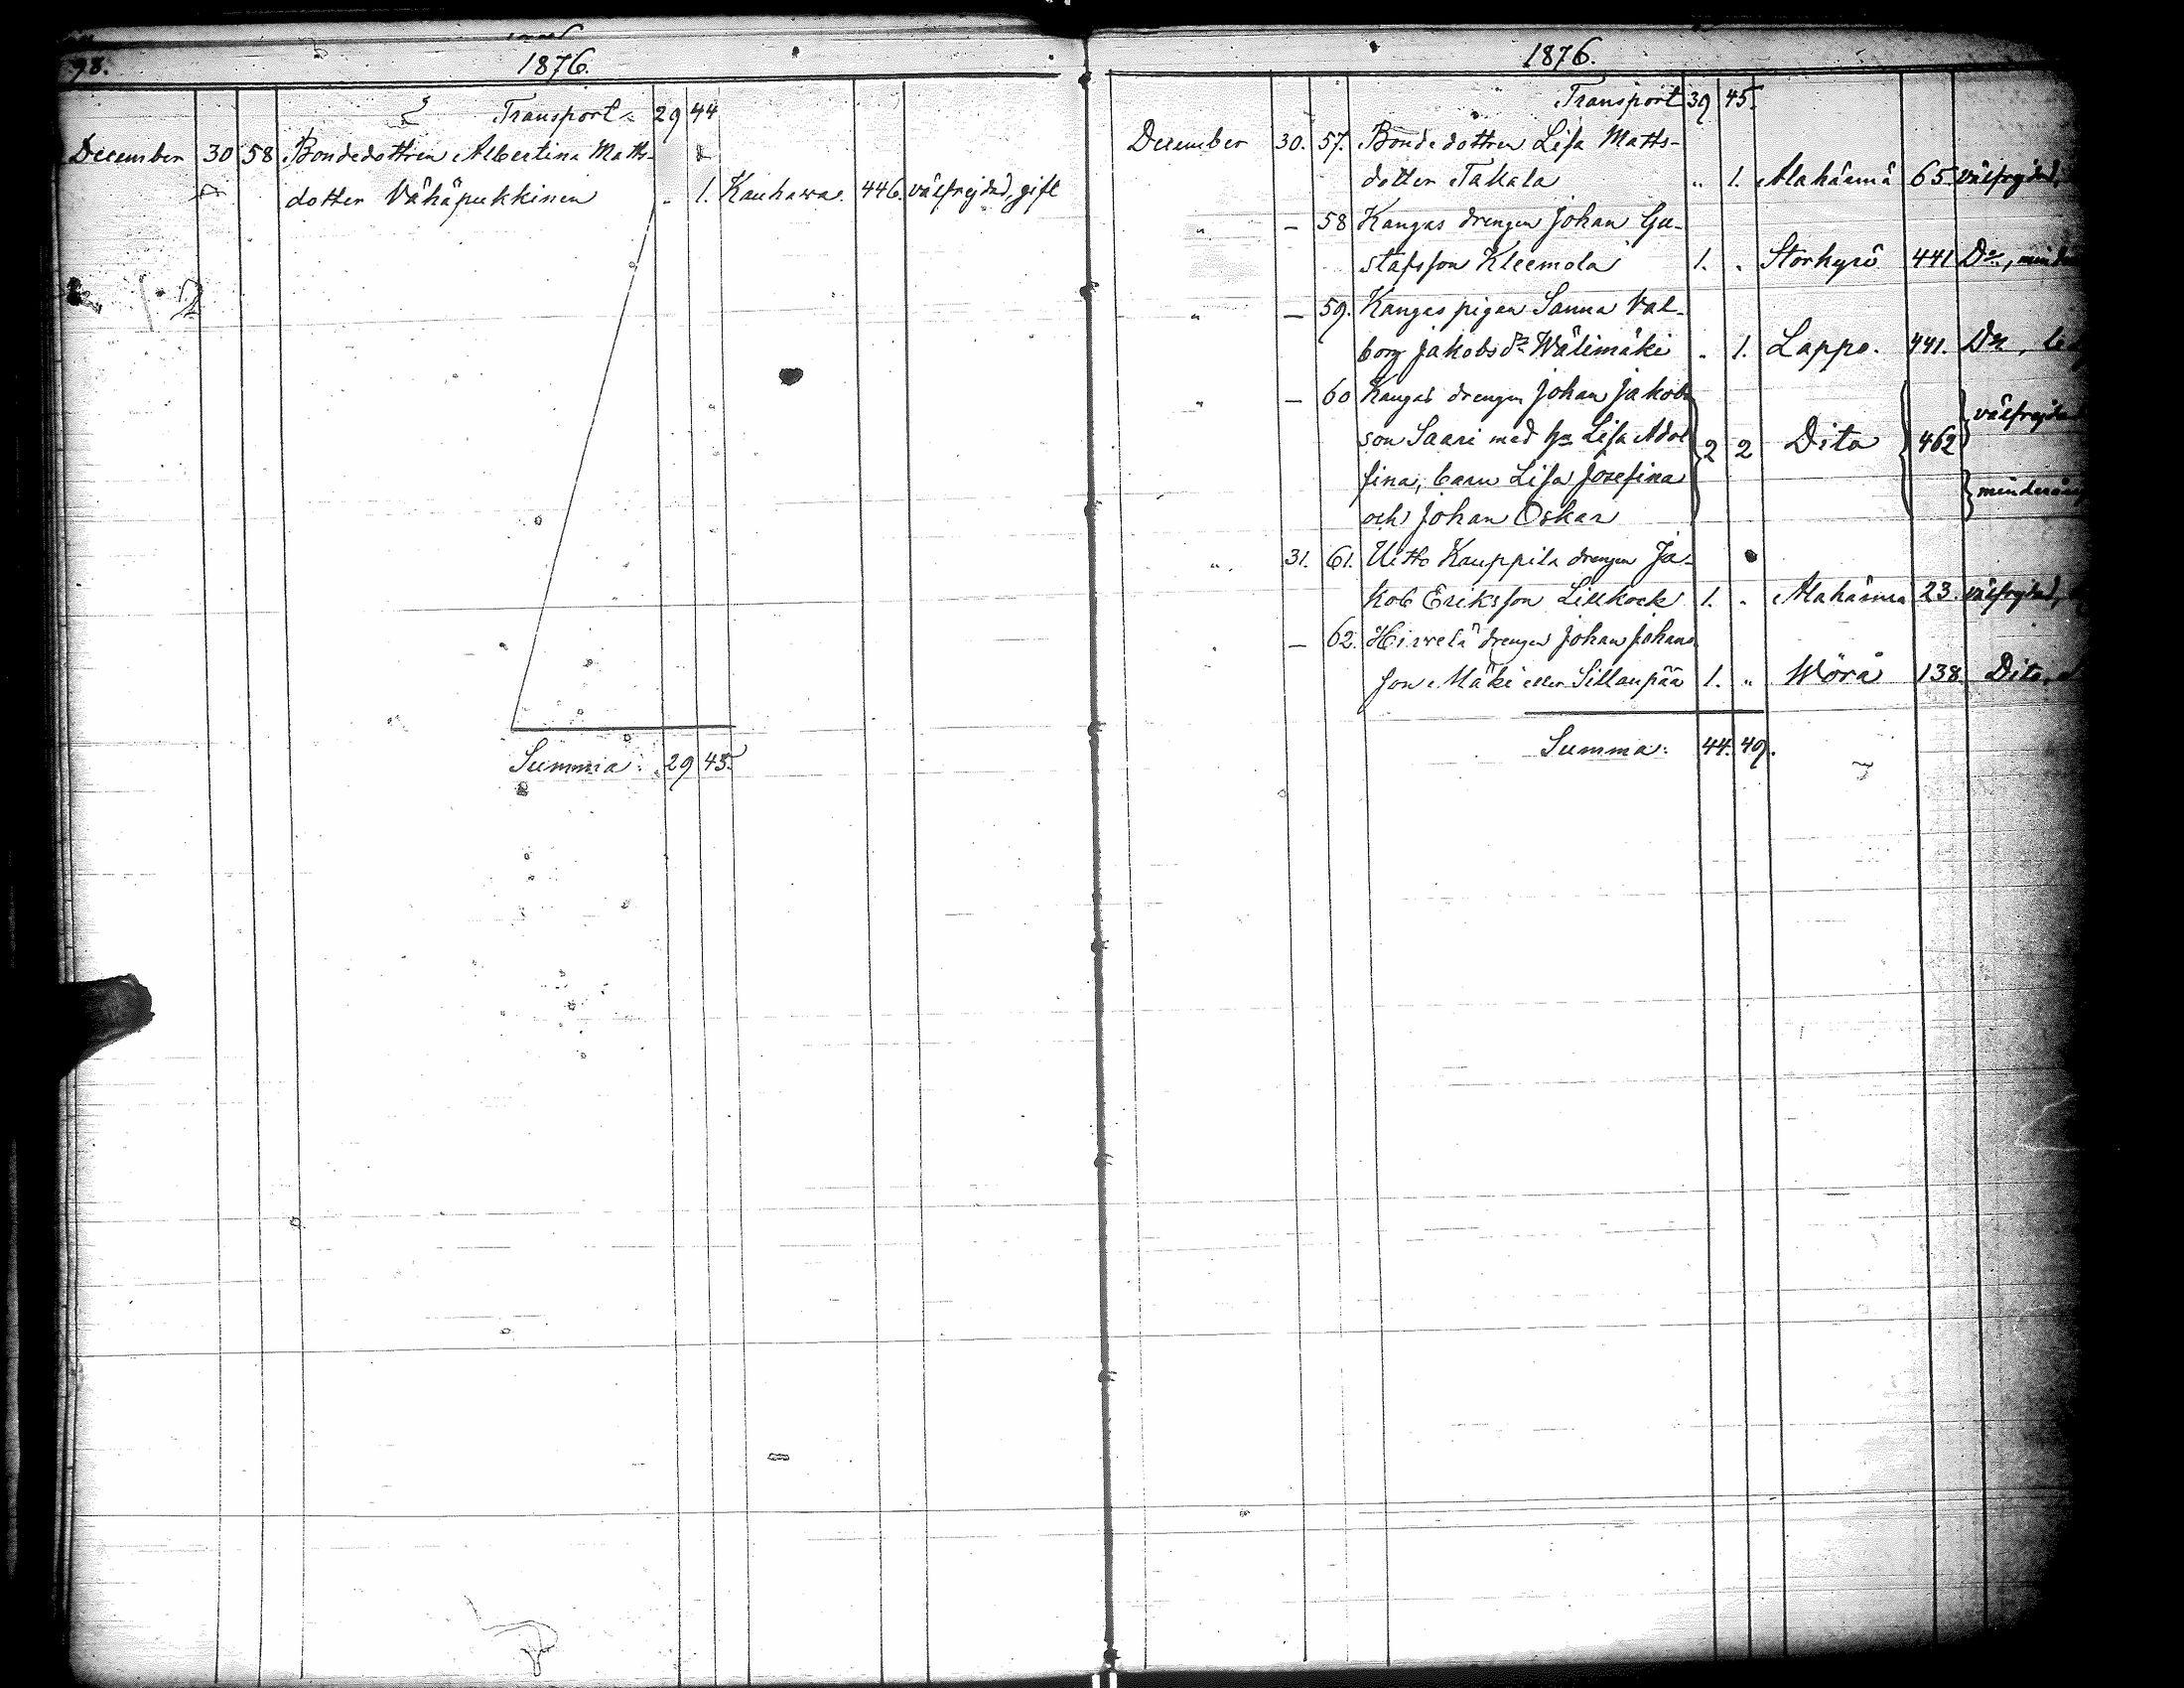 98.
1876.
Transport. 29 44
December 30 58 Bondedottren Albertina Matts-
dotter Vähäpukkinen „ 1. Kauhava. 446. välfrejdad, gift
Summa: 29 45.
1876.
Transport 39 45.
December 30. 57. Bondedottren Lisa Matts-
dotter Takala „ 1. Alahärmä 65. välfrejdad,
„ — 58 Kangas drengen Johan Gu-
stafsson Kleemola 1. „ Storkyro 441 Do,
„ — 59. Kangas pigan Sanna Val-
borg Jakobsdr Wälimäki „ 1. Lappo. 441. Do,
„ — 60 Kangas drengen Johan Jakobs
son Saari med hu Lisa Adol 2 2 Dito 462 välfrejdade
fina, barn Lisa Josefina minderårig
och Johan Oskar
„ 31. 61. Uitto Kauppila drengen Ja-
kob Eriksson Lillkock 1. „ Alahärmä 23. välfrejdad,
„ — 62. Hirvelä drengen Johan Johans
son Mäki eller Sillanpää 1. „ Wörå 138 Dito,
Summa: 44. 49.